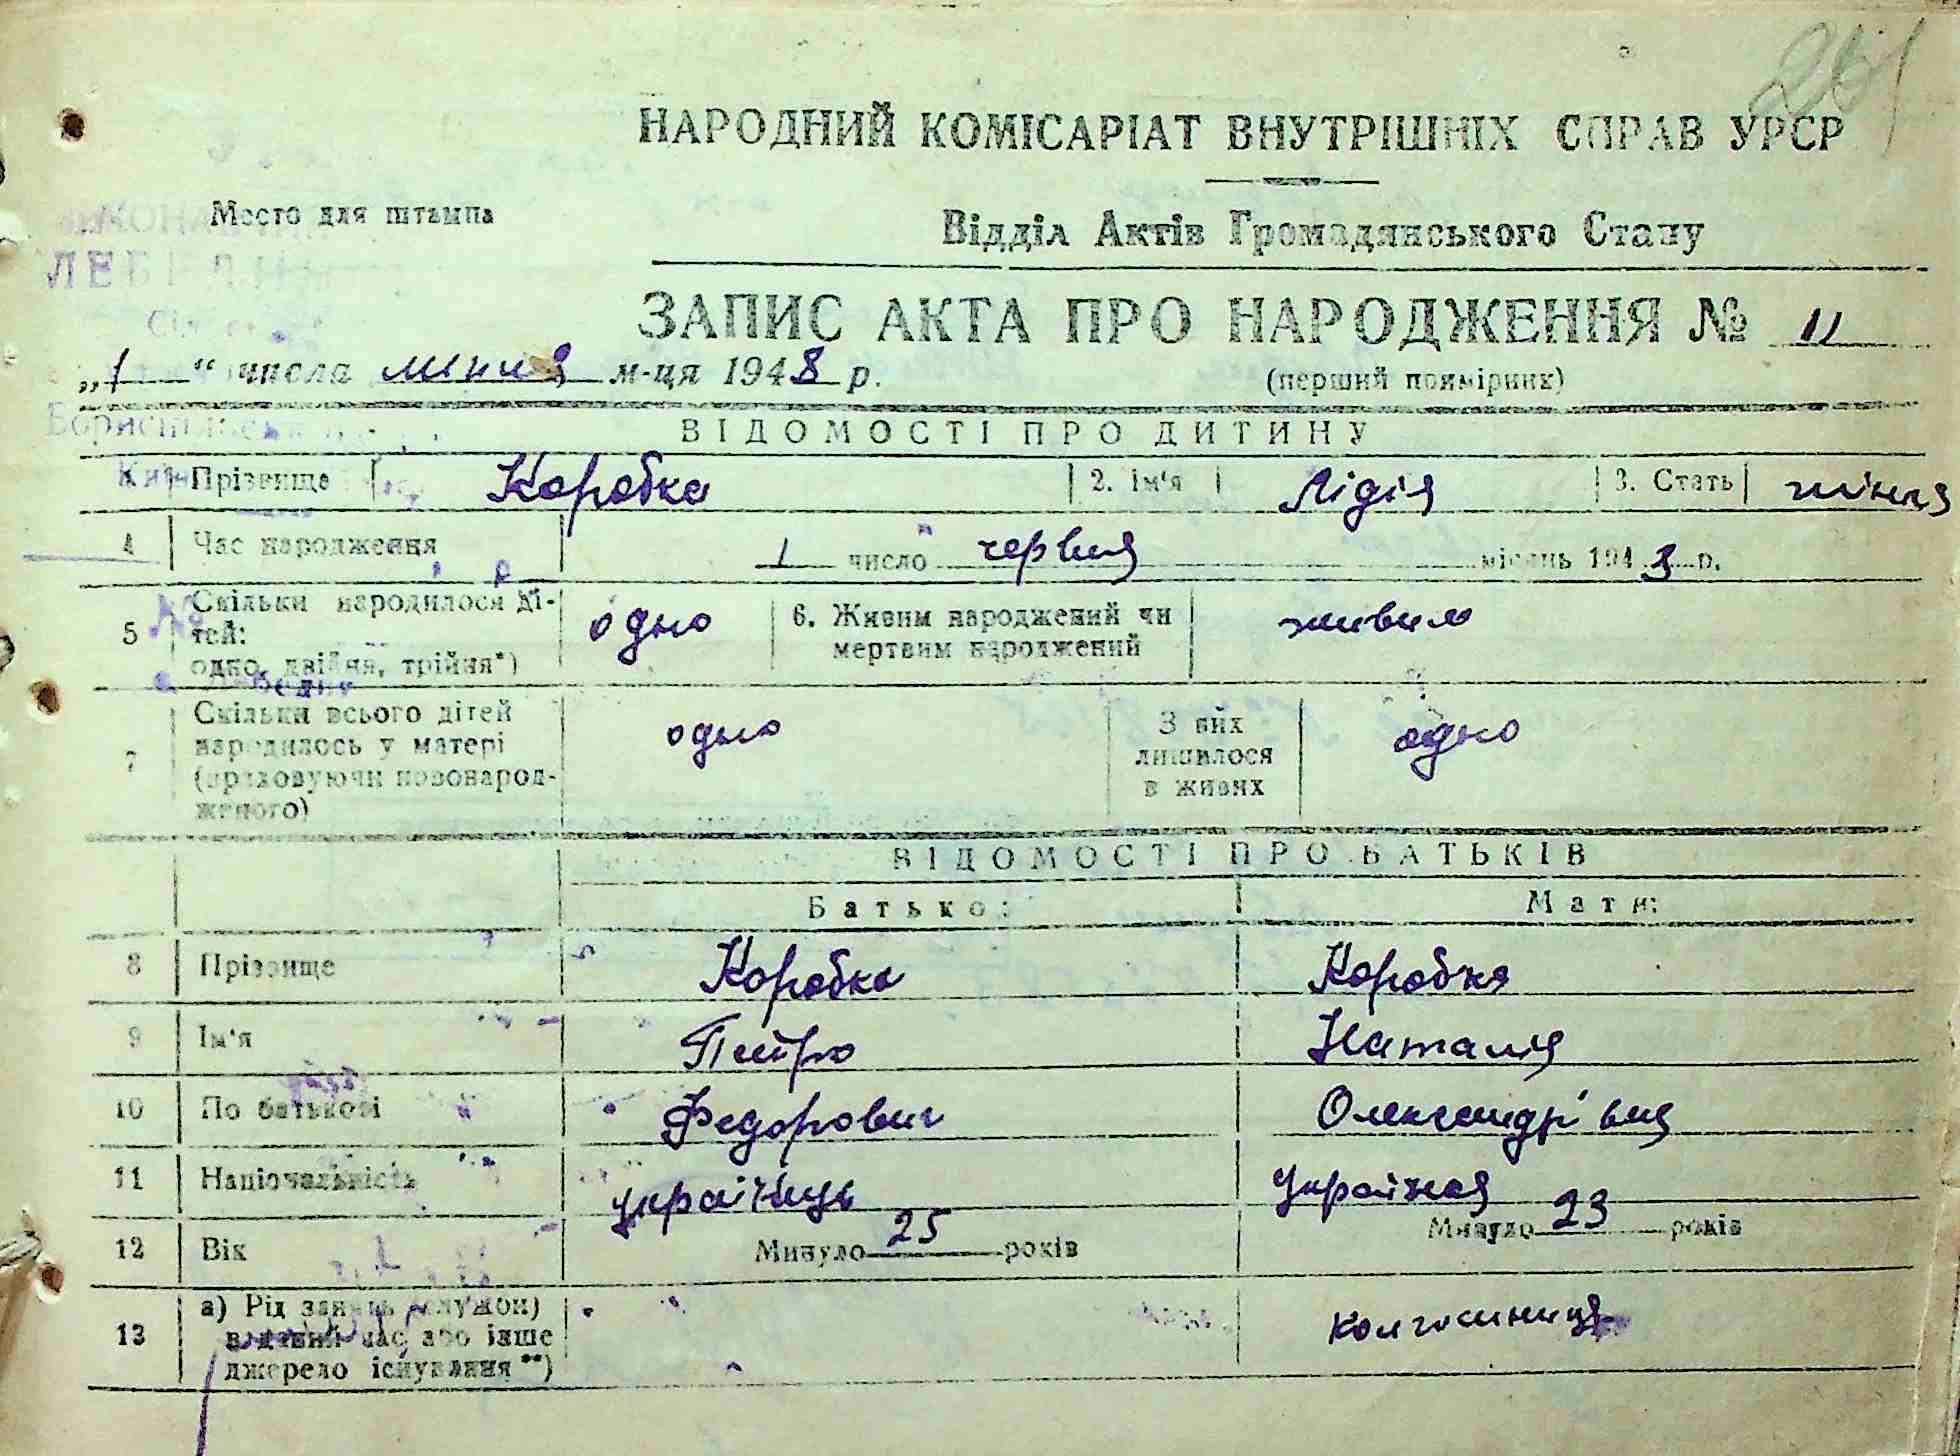 261
НАРОДНИЙ КОМІСАРІАТ ВНУТРІШНІХ СПРАВ УРСР
Место для штампа
Відділ Актів Громадянського Стану
ЛЕБЕДИН
ЗАПИС АКТА ПРО НАРОДЖЕННЯ № 11
„1“ числа липня м-ця 1943 р.
(перший примірник)
ВІДОМОСТІ ПРО ДИТИНУ
Прізвище Коробка 2. Ім'я Лідія 3. Стать жіноча
4 Час народження 1 число червня місяць 1943 р.
5 Скільки народилося ді-
тей:
одно, двійня, трійня*) одно 6. Живим народжений чи
мертвим народжений живим
7 Скільки всього дітей
народилось у матері
(враховуючи новонарод-
женого) одно З них
лишилося
в живих одно
ВІДОМОСТІ ПРО БАТЬКІВ
Батько: Мати:
8 Прізвище Коробка Коробка
9 Ім'я Петро Наталія
10 По батькові Федорович Олександрівна
11 Національність українець українка
12 Вік Минуло 25 років Минуло 23 років
13 а) Рід занять (служби)
в даний час або інше
джерело існування**) колгоспниця